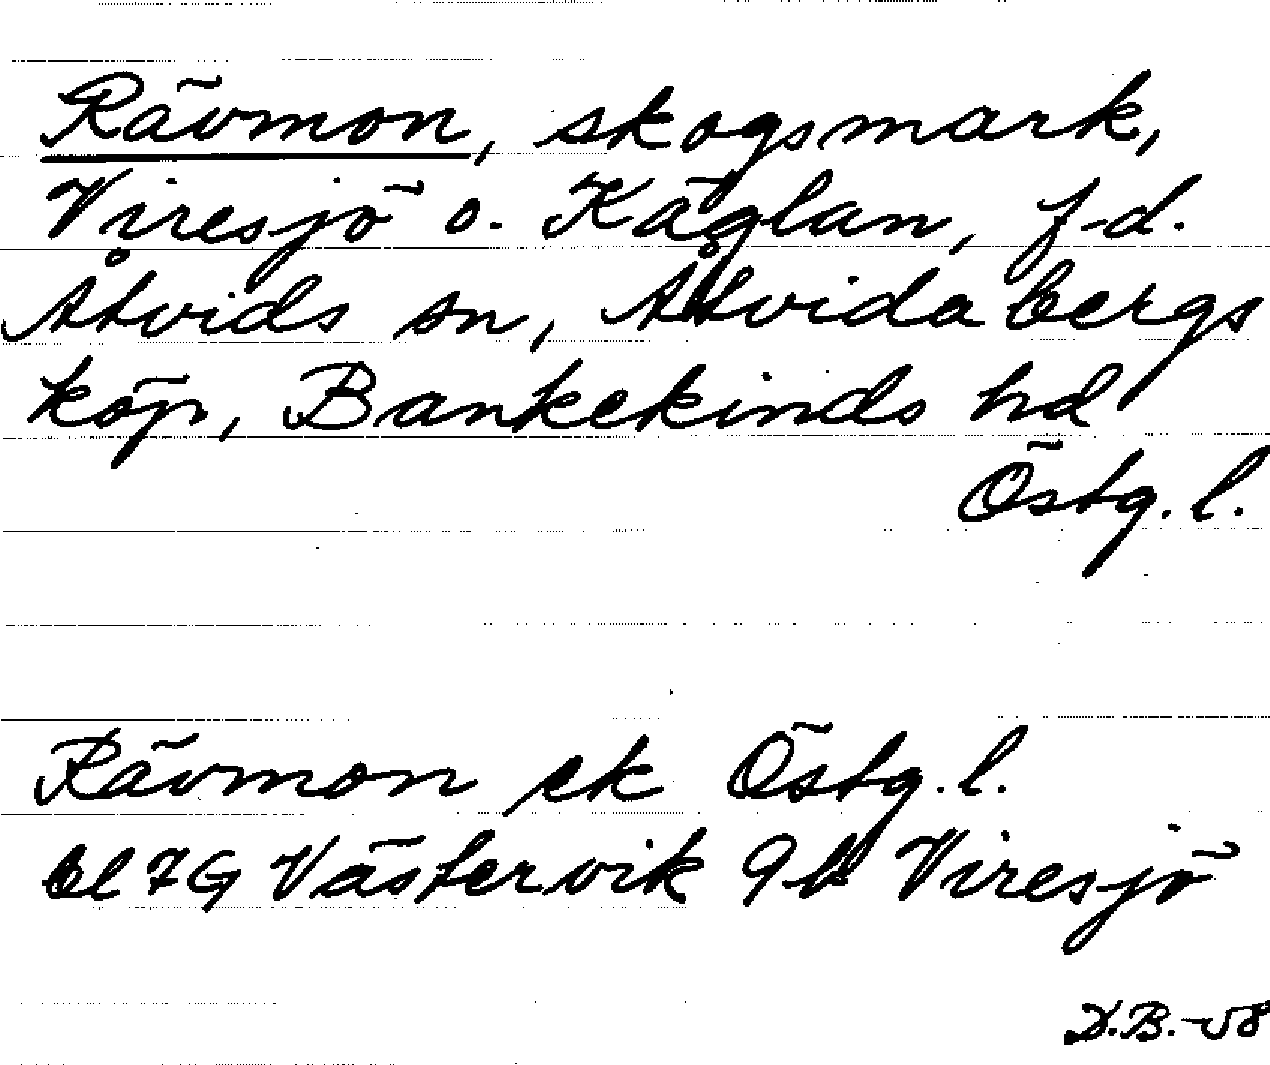 Rävmon, skogsmark,
Viresjö o. Käglan, f.d.
Åtvids sn, Åtvidabergs
köp, Bankekinds hd
Östg. l.
Rävmon ek Östg. l.
bl 7G Västervik 9b Viresjö
D.B.-58